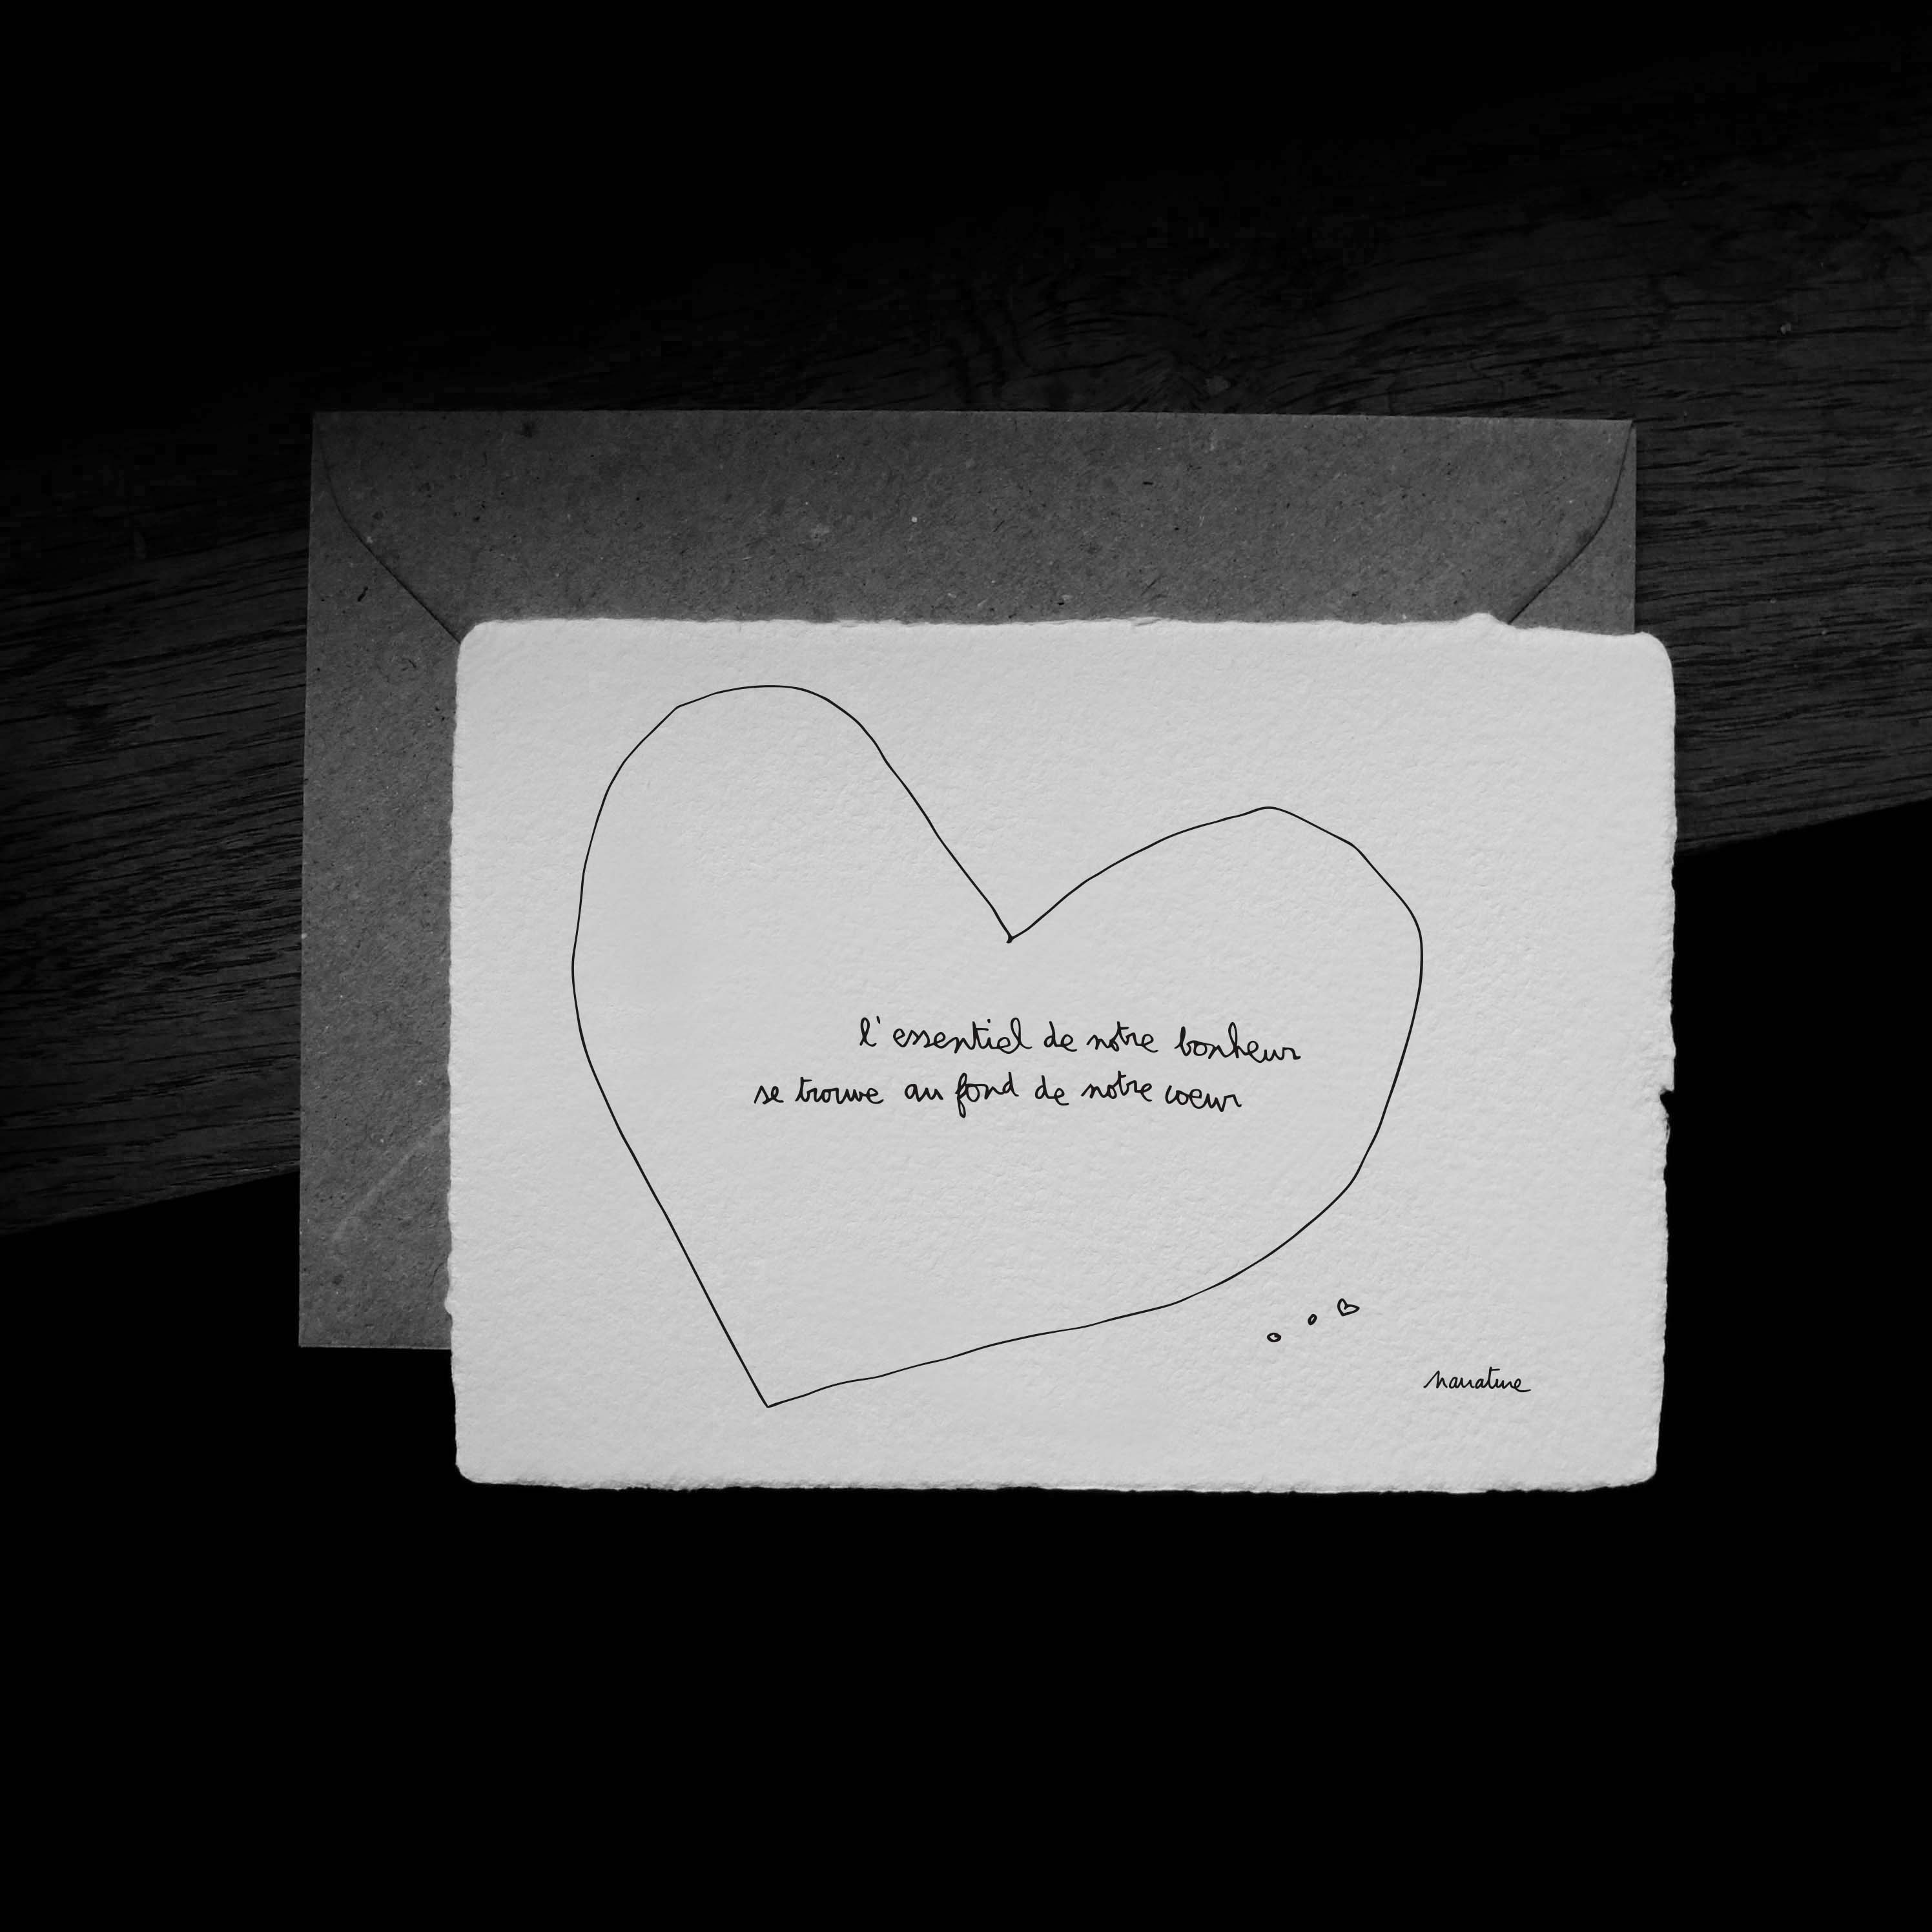 l'essentiel de notre bonheur
se trouve au fond de notre coeur